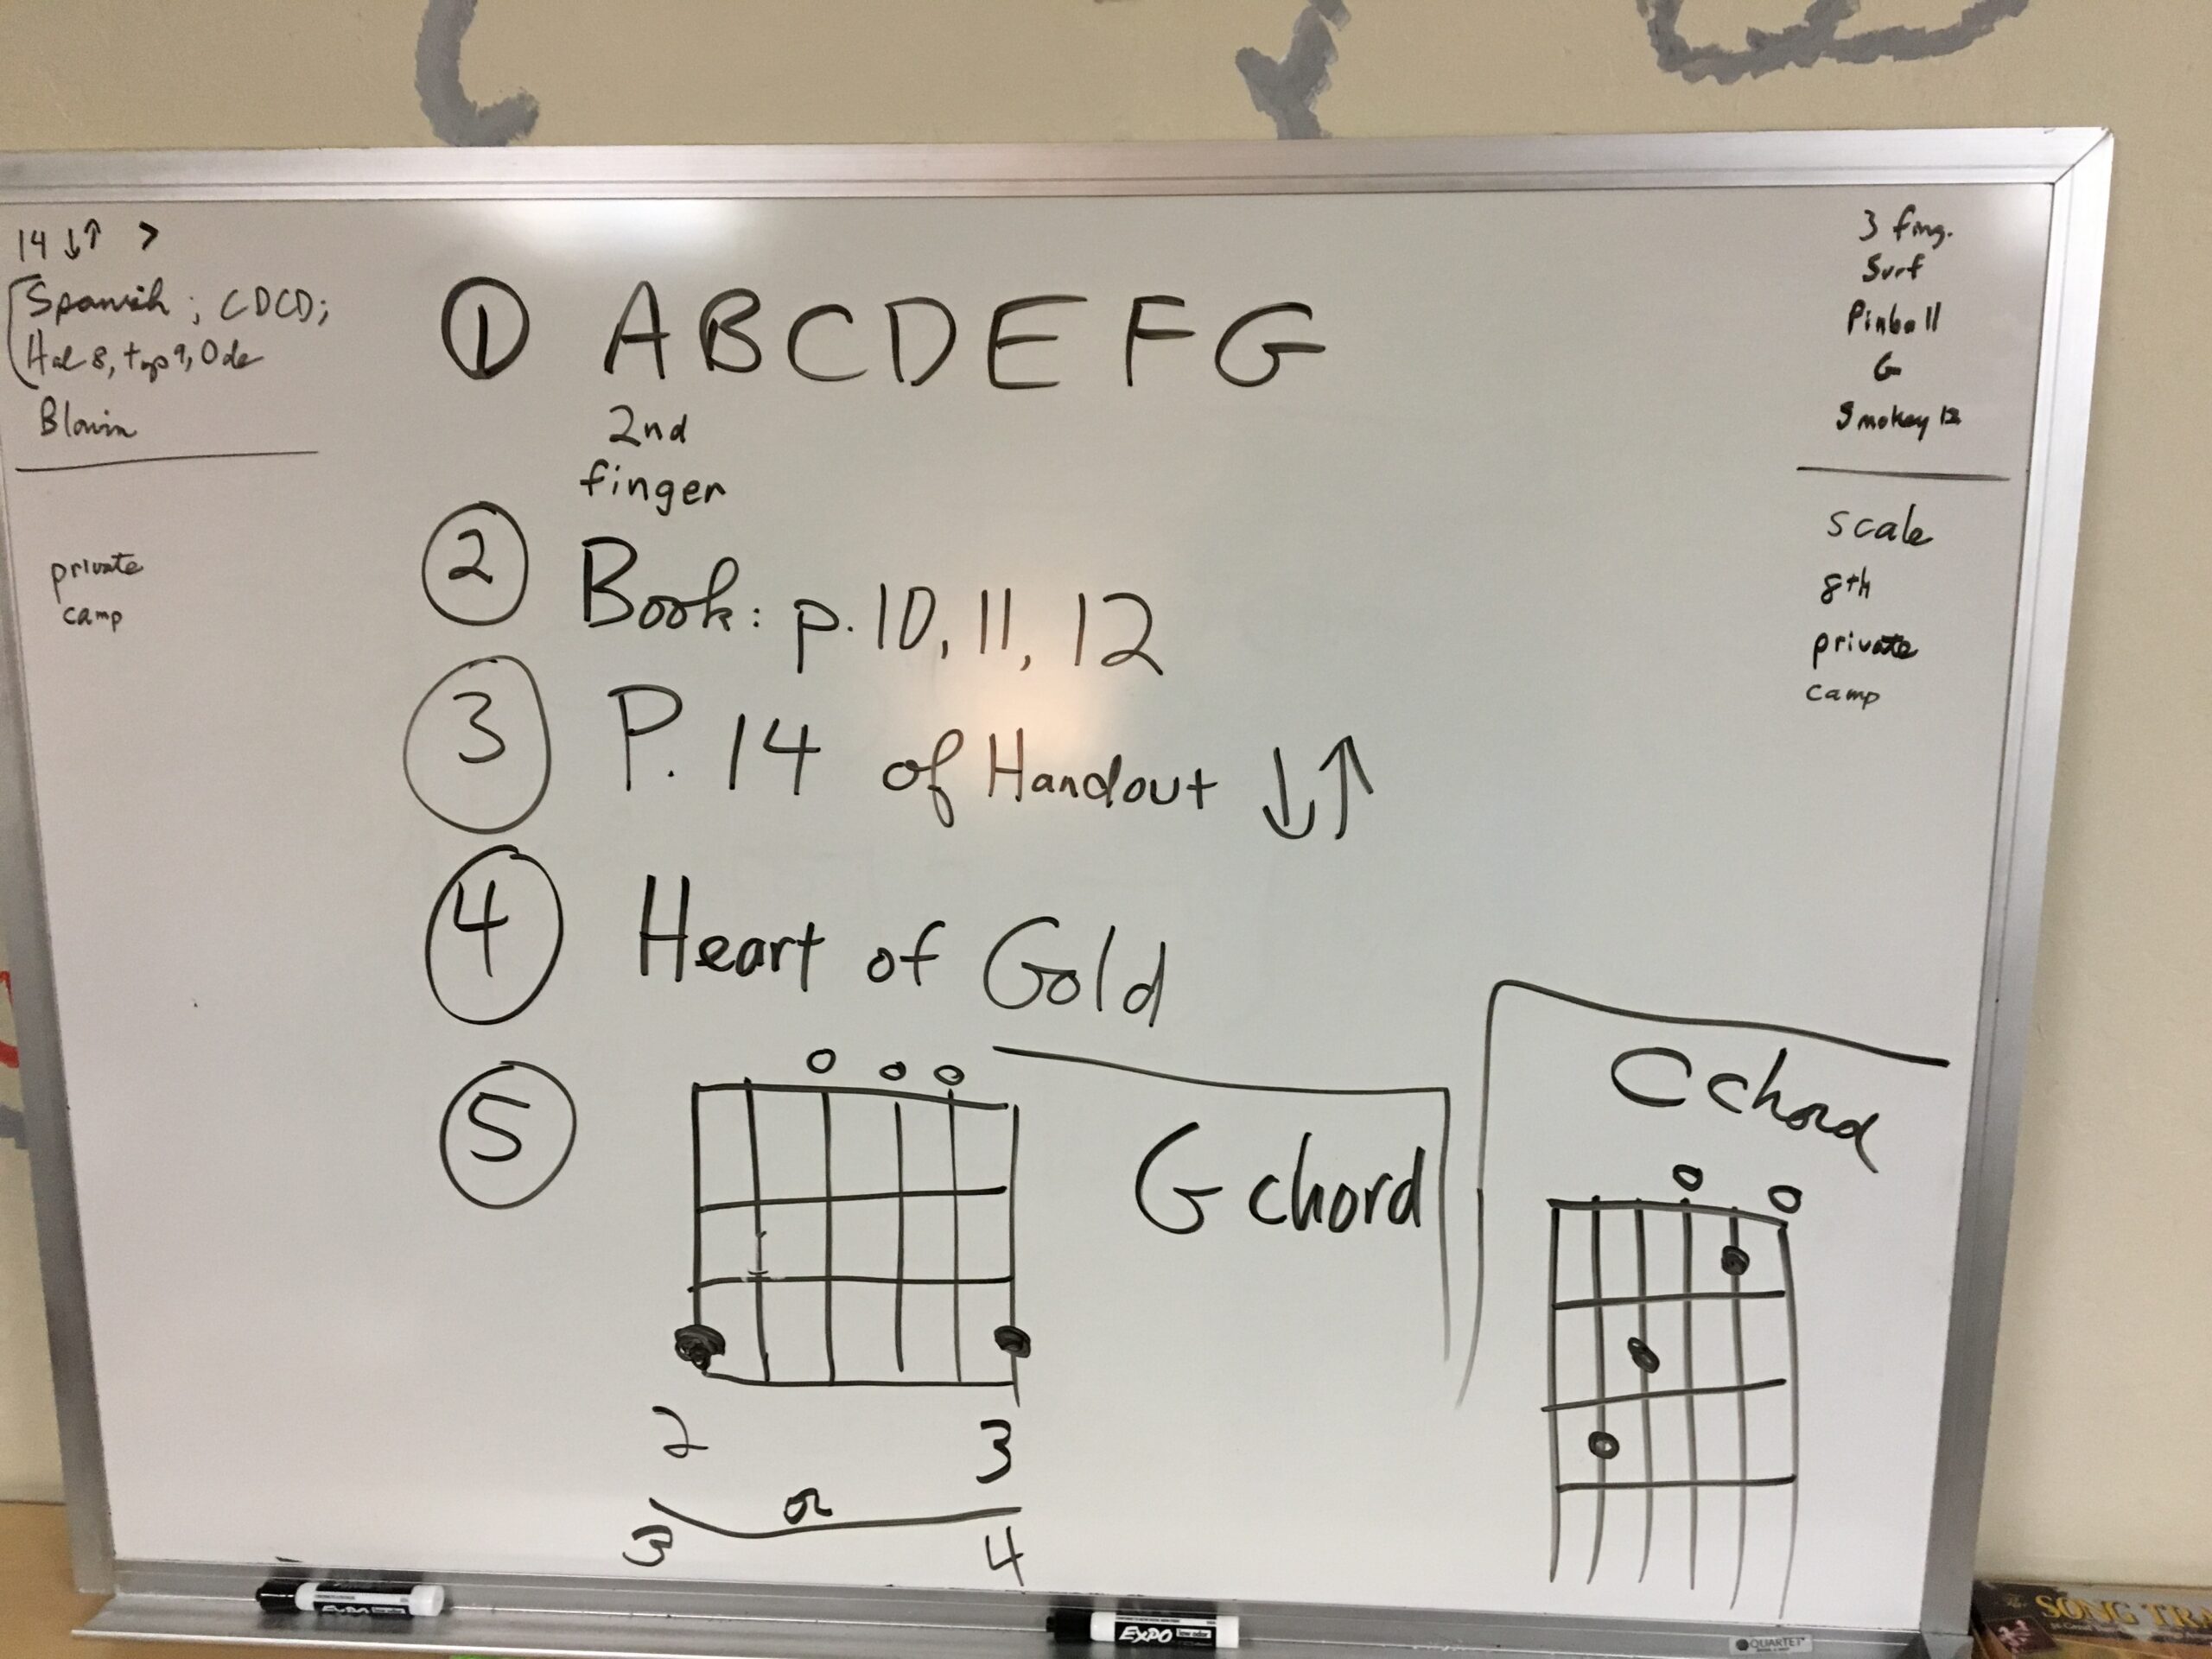 14 ↓↑ >
Spanish; CDCD;
Hal 8, top 9, Ode
Blowin
private
camp
① ABCDEFG
2nd
finger
② Book: p. 10, 11, 12
③ P. 14 of Handout ↓↑
④ Heart of Gold
⑤
G chord
2 3
or
3 4
C chord
3 fing.
Surf
Pinball
G
Smokey 12
scale
8th
private
camp
EXPO low odor
EXPO low odor
QUARTET
SONG TR